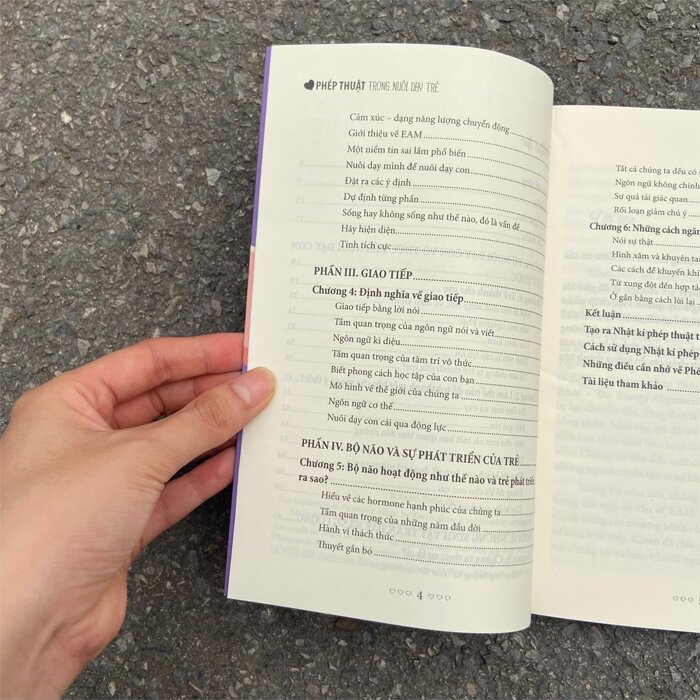 PHÉP THUẬT TRONG NUÔI DẠY TRẺ
Cảm xúc – dạng năng lượng chuyển động
Giới thiệu về EAM
Một niềm tin sai lầm phổ biến
Nuôi dạy mình để nuôi dạy con
Đặt ra các ý định
Dự định từng phần
Sống hay không sống như thế nào, đó là vấn đề
Hãy hiện diện
Tính tích cực
PHẦN III. GIAO TIẾP
Chương 4: Định nghĩa về giao tiếp
Giao tiếp bằng lời nói
Tầm quan trọng của ngôn ngữ nói và viết
Ngôn ngữ kì diệu
Tầm quan trọng của tâm trí vô thức
Biết phong cách học tập của con bạn
Mô hình về thế giới của chúng ta
Ngôn ngữ cơ thể
Nuôi dạy con cái qua động lực
PHẦN IV. BỘ NÃO VÀ SỰ PHÁT TRIỂN CỦA TRẺ
Chương 5: Bộ não hoạt động như thế nào và trẻ phát triển
ra sao?
Hiểu về các hormone hạnh phúc của chúng ta
Tầm quan trọng của những năm đầu đời
Hành vi thách thức
Thuyết gắn bó
4
Tất cả chúng ta đều có
Ngôn ngữ không chính
Sự quá tải giác quan
Rối loạn giảm chú ý
Chương 6: Những cách ngăn
Nói sự thật
Hình xăm và khuyên tai
Các cách để khuyến kh
Từ xung đột đến hợp tá
Ở gần bằng cách lùi lại
Kết luận
Tạo ra Nhật kí phép thuật
Cách sử dụng Nhật kí phép
Những điều cần nhớ về Phé
Tài liệu tham khảo